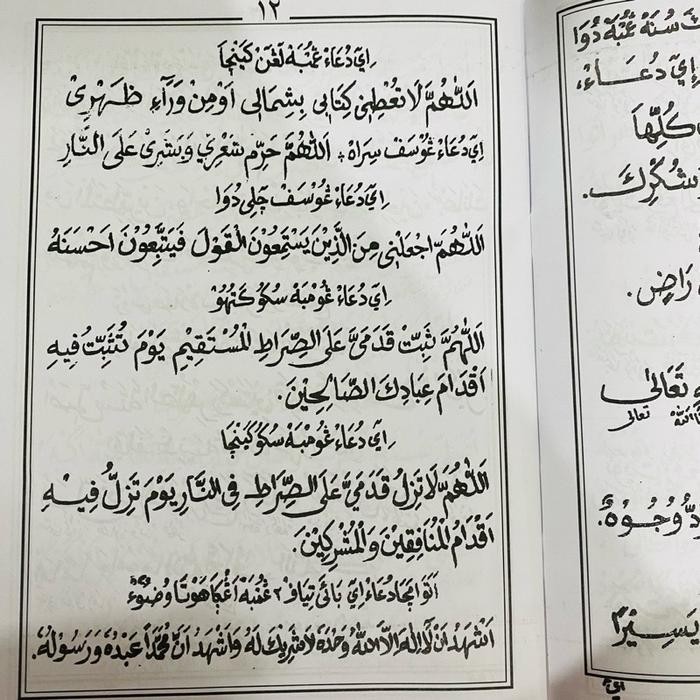 ١٢
اِيَ دُعَاءْ غُمْبَهْ لَڠَنْ كَيْنْچَا
اَللّٰهُمَّ لَا تُعْطِنِيْ كِتَابِيْ بِشِمَالِيْ اَوْ مِنْ وَرَآءِ ظَهْرِيْ
اِيَ دُعَاءْ غُوْسَفْ سِرَاهْ ؞ اَللّٰهُمَّ حَرِّمْ شَعْرِيْ وَبَشَرِيْ عَلَى النَّارِ
اِيَ دُعَاءْ غُوْسَفْ چَلِيْ دُوَا
اَللّٰهُمَّ اجْعَلْنِيْ مِنَ الَّذِيْنَ يَسْتَمِعُوْنَ الْقَوْلَ فَيَتَّبِعُوْنَ اَحْسَنَهُ
اِيَ دُعَاءْ غُوْمْبَهْ سُكُوْ كَنُهُوْ
اَللّٰهُمَّ ثَبِّتْ قَدَمَيَّ عَلَى الصِّرَاطِ الْمُسْتَقِيْمِ يَوْمَ تُثَبِّتُ فِيْهِ
اَقْدَامَ عِبَادِكَ الصَّالِحِيْنَ.
اِيَ دُعَاءْ غُوْمْبَهْ سُكُوْ كَيْنْچَا
اَللّٰهُمَّ لَا تَزِلُّ قَدَمَيَّ عَلَى الصِّرَاطِ فِى النَّارِ يَوْمَ تَزِلُّ فِيْهِ
اَقْدَامُ الْمُنَافِقِيْنَ وَالْمُشْرِكِيْنَ.
دُعَاءْ اِيَ
اَشْهَدُ اَنْ لَّا اِلٰهَ اِلَّا اللّٰهُ وَحْدَهُ لَا شَرِيْكَ لَهُ وَاَشْهَدُ اَنَّ مُحَمَّدًا عَبْدُهُ وَرَسُوْلُهُ.
سُنَهْ غُمْبَهْ دُوَا
اِيَ دُعَاءْ،
كُلِّهَا
شُكْرِكَ.
رَاضٍ.
تَعَالٰى
تعالى
وُجُوْهٌ.
يَسِيْرًا
اِيَ